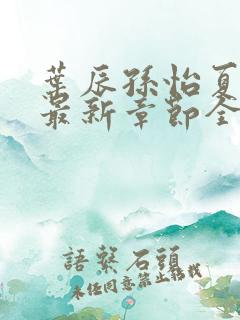 葉辰孫怡夏
最新章節全
語繫石頭
未經同意禁止轉載